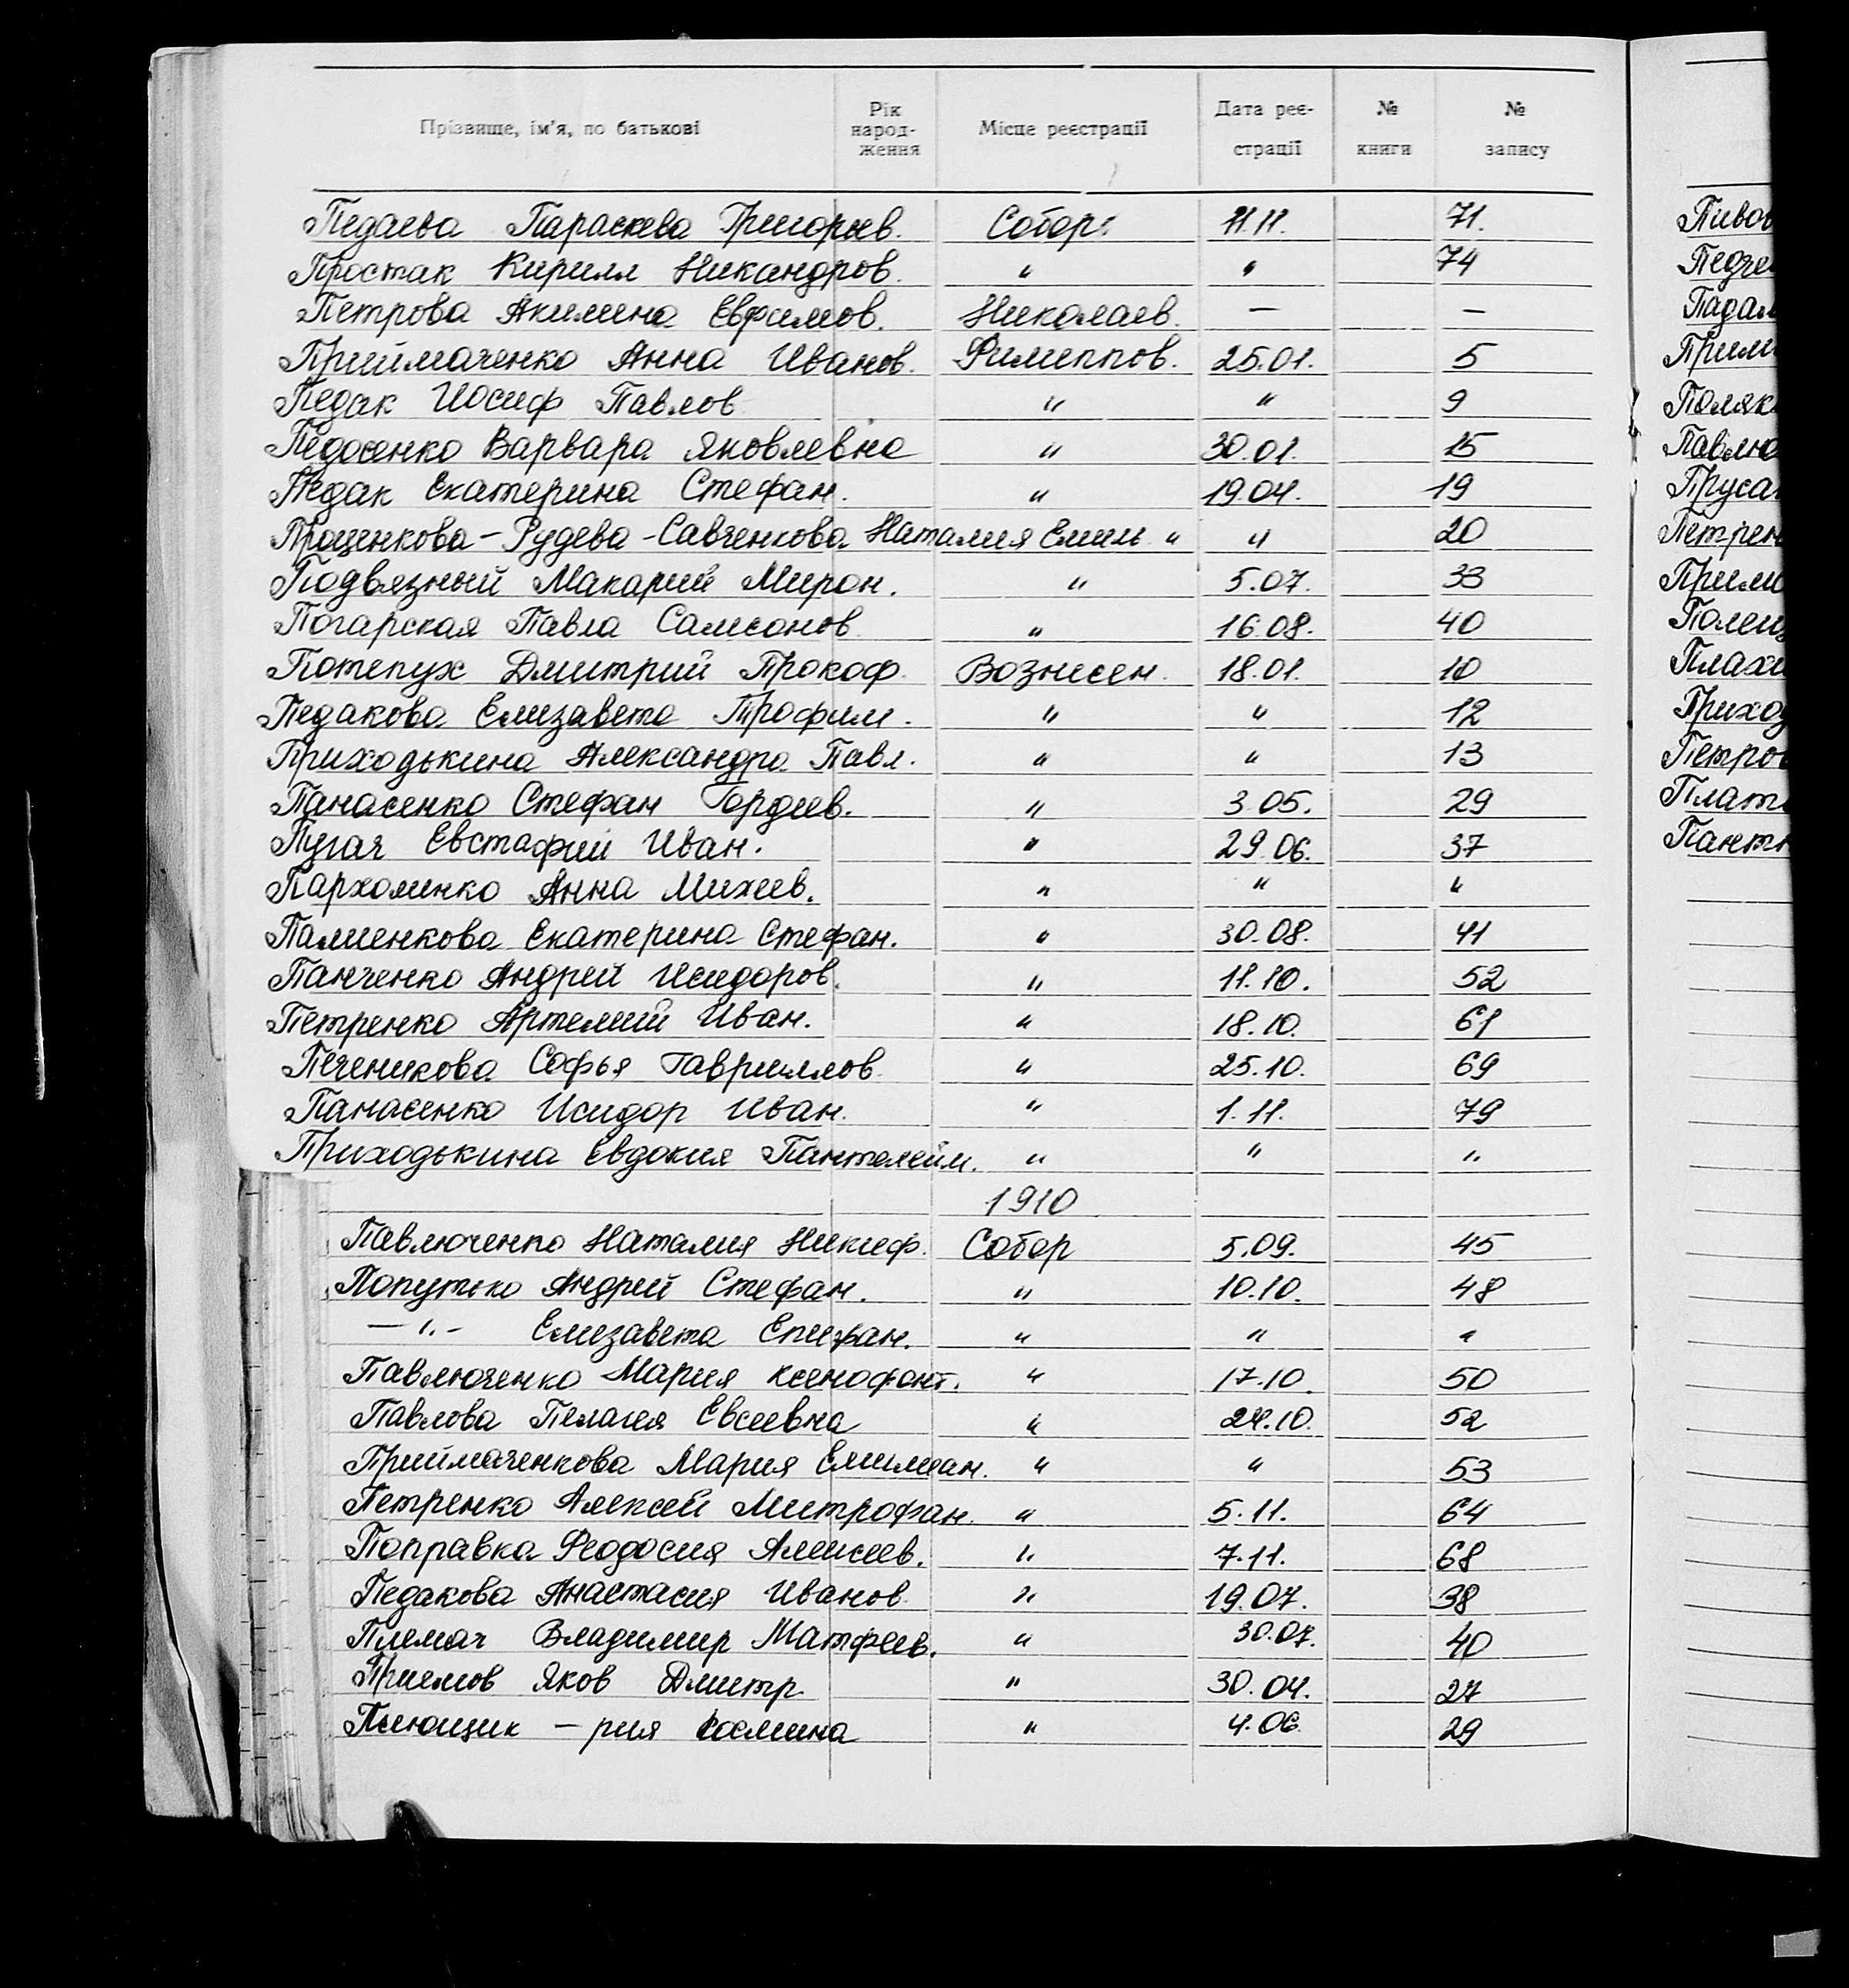 Прізвище, ім'я, по батькові Рік народ-ження Місце реєстрації Дата реє-страції № книги № запису
Педаева Параскева Григорьев. Собор. 11.11. 71.
Простак Кирилл Никандров. " " 74
Петрова Акилина Евфимов. Николаев. — —
Приймаченко Анна Иванов. Филиппов. 25.01. 5
Педак Иосиф Павлов " " 9
Педосенко Варвара Яковлевна " 30.01. 15
Педак Екатерина Стефан. " 19.04. 19
Проценкова-Рудева-Савченкова Наталия Емил. " " 20
Подвязный Макарий Мирон. " 5.07. 33
Погарская Павла Самсонов " 16.08. 40
Потепух Дмитрий Прокоф. Вознесен. 18.01. 10
Педакова Елизавета Трофим. " " 12
Приходькина Александра Павл. " " 13
Панасенко Стефан Гордеев. " 3.05. 29
Пугач Евстафий Иван. " 29.06. 37
Пархоменко Анна Михеев. " " "
Палиенкова Екатерина Стефан. " 30.08. 41
Панченко Андрей Исидоров. " 11.10. 52
Петренко Артемий Иван. " 18.10. 61
Печеникова Софья Гавриилов. " 25.10. 69
Панасенко Исидор Иван. " 1.11. 79
Приходькина Евдокия Пантелейм. " " "
1910
Павлюченко Наталия Никиф. Собор 5.09. 45
Попутько Андрей Стефан. " 10.10. 48
— " - Елизавета Епифан. " " "
Павлюченко Мария Ксенофонт. " 17.10. 50
Павлова Пелагея Евсеевна " 24.10. 52
Приймаченкова Мария Емилиан. " " 53
Петренко Алексей Митрофан. " 5.11. 64
Поправка Феодосия Алексеев. " 7.11. 68
Педакова Анастасия Иванов " 19.07. 38
Племач Владимир Матфеев. " 30.07. 40
Приемов Яков Дмитр " 30.04. 27
— рия " 4.06. 29
Педзе
Падал
Поляк
Павлю
Пруса
Петрен
Плахи
Приход
Петров
Плат
Пант